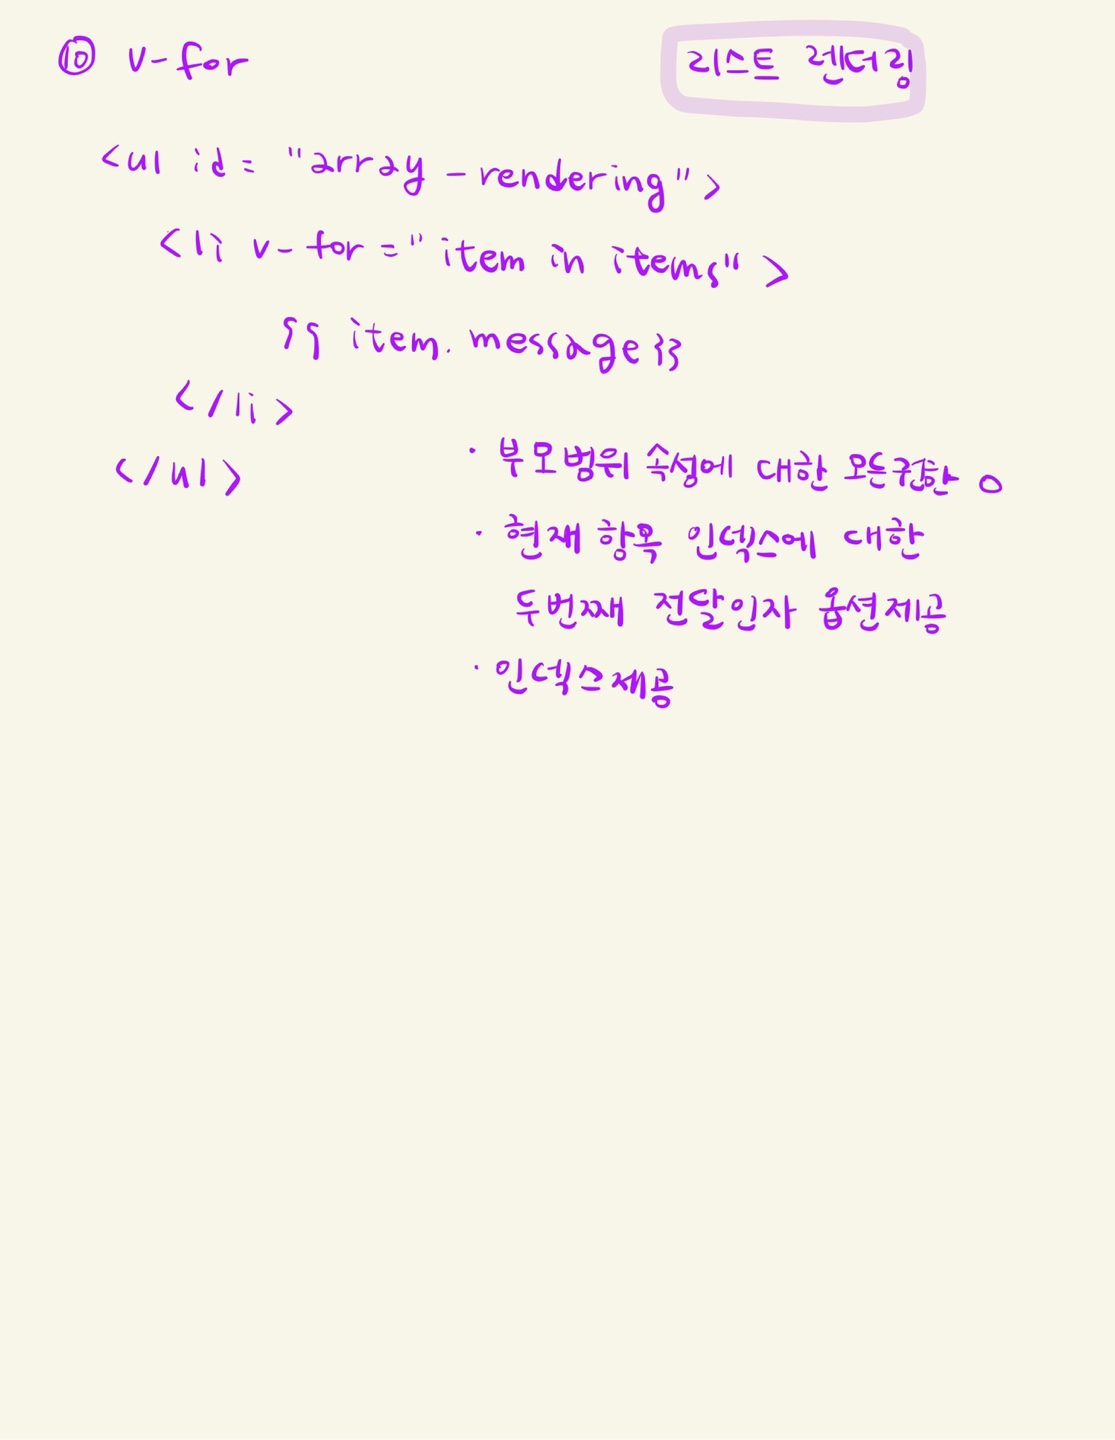 ⑩ v-for 리스트 렌더링
<ul id = "array-rendering">
<li v-for = "item in items">
{{ item.message }}
</li>
</ul>
· 부모범위 속성에 대한 모든권한 O
· 현재 항목 인덱스에 대한
두번째 전달인자 옵션제공
· 인덱스제공